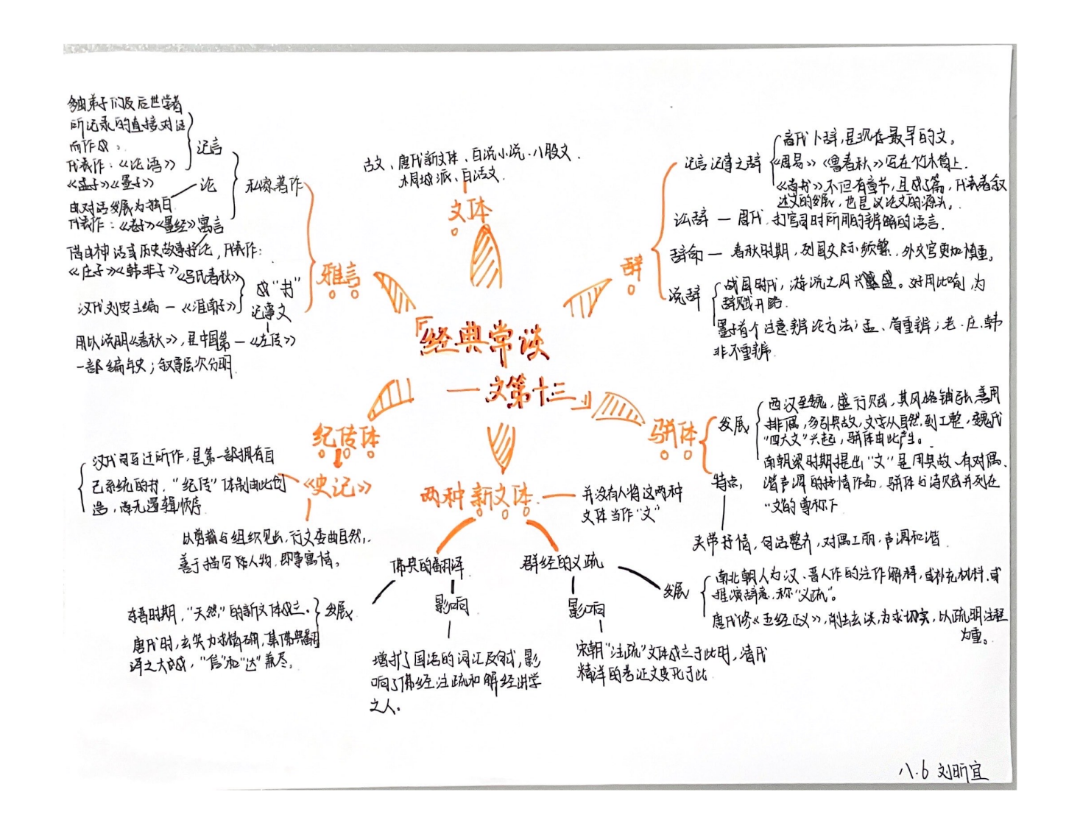 「经典常谈
——文第十三」
文体
古文、唐代新文体、白话小说、八股文、
桐城派、白话文。
辞
记言记事之辞
商代卜辞，是现存最早的文。
《周易》《鲁春秋》写在竹木简上。
《尚书》不但有章节，且成了篇，代表着叙
述文的发展，也是议论文的源头。
讼辞 — 周代，打官司时所用的辩解的语言。
辞命 — 春秋时期，列国交际频繁，外交官更加慎重。
说辞
战国时代，游说之风大盛。对用比喻，为
辞赋开路。
墨子首个注意辩论方法；孟、荀重辩；老、庄、韩
非不重辩。
骈体
发展
西汉至魏，盛行赋，其风格铺张，喜用
排偶，多引典故，文字从自然到工整，魏代
"四六文"兴起，骈体由此产生。
南朝梁时期提出"文"是用典故、有对偶、
谐声调的抒情作品，骈体与诗赋并列在
"文"的尊称下
特点
夹带抒情，句法整齐，对偶工丽，声调和谐
两种新文体
并没有人将这两种
文体当作"文"
佛典的翻译
发展
东晋时期，"天然"的新文体成立。
唐代时，玄奘力求精确，集佛典翻
译之大成，"信"和"达"兼尽。
影响
增拓了国语的词汇及句式，影
响了佛经注疏和解经讲学
之人。
群经的义疏
影响
宋朝"注疏"文体成立于此时，清代
精详的考证文变化于此
发展
南北朝人为汉、晋人作的注作解释，或补充材料，或
推演辞意，称"义疏"。
唐代修《五经正义》，削去玄谈，力求切实，以疏明注经
为重。
纪传体
《史记》
汉代司马迁所作，是第一部拥有自
己系统的书，"纪传"体制由此创
造，有无逻辑顺序
以剪裁与组织见长，行文委曲自然，
善于描写人物，即事寓情。
雅言
私家著作
记言
多由弟子们及后世学者
所记录的直接对话
而作成；
代表作：《论语》
《孟子》《墨子》
论
由对话发展为独白
代表作：《老子》《墨经》
寓言
借由神话或历史故事抒论，代表作：
《庄子》《韩非子》
成"书"
《吕氏春秋》
汉代刘安主编 — 《淮南子》
记事文
《左传》
用以说明《春秋》，是中国第
一部编年史；叙事层次分明
八.6 刘昕宜